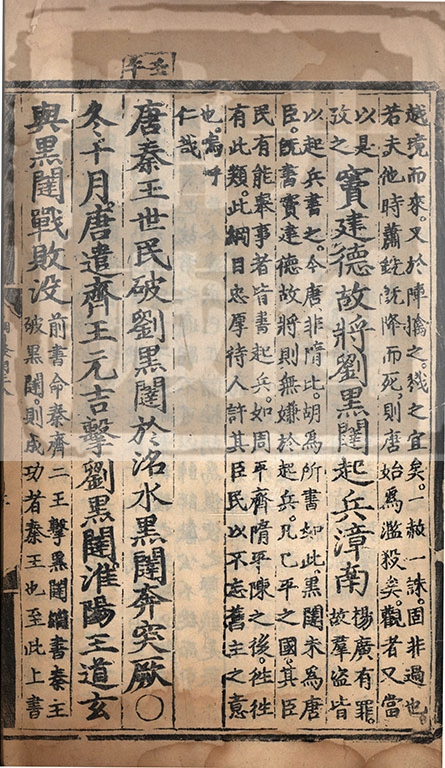 越境而來。又於陣擒之。戮之宜矣。一赦一誅。固非過也
若夫他時蕭銑旣降而死。則唐始爲濫殺矣。觀者又當
以是
攷之
竇建德故將劉黑闥起兵漳南
楊廣有罪。
故羣盜皆
以起兵書之。今唐非隋比。胡爲所書如此。黑闥未爲唐
臣。旣書竇建德故將則無嫌於起兵。凡已平之國。其臣
民有能舉事者皆書起兵。如周平齊隋平陳之後。徃徃
有此類。此綱目忠厚待人許其臣民以不忘舊主之意
也。
仁哉
唐秦王世民破劉黑闥於洺水黑闥奔突厥〇
冬十月。唐遣齊王元吉擊劉黑闥。淮陽王道玄
與黑闥戰敗没
前書命秦齊二王擊黑闥繼書秦王
破黑闥。則成功者秦王也至此上書